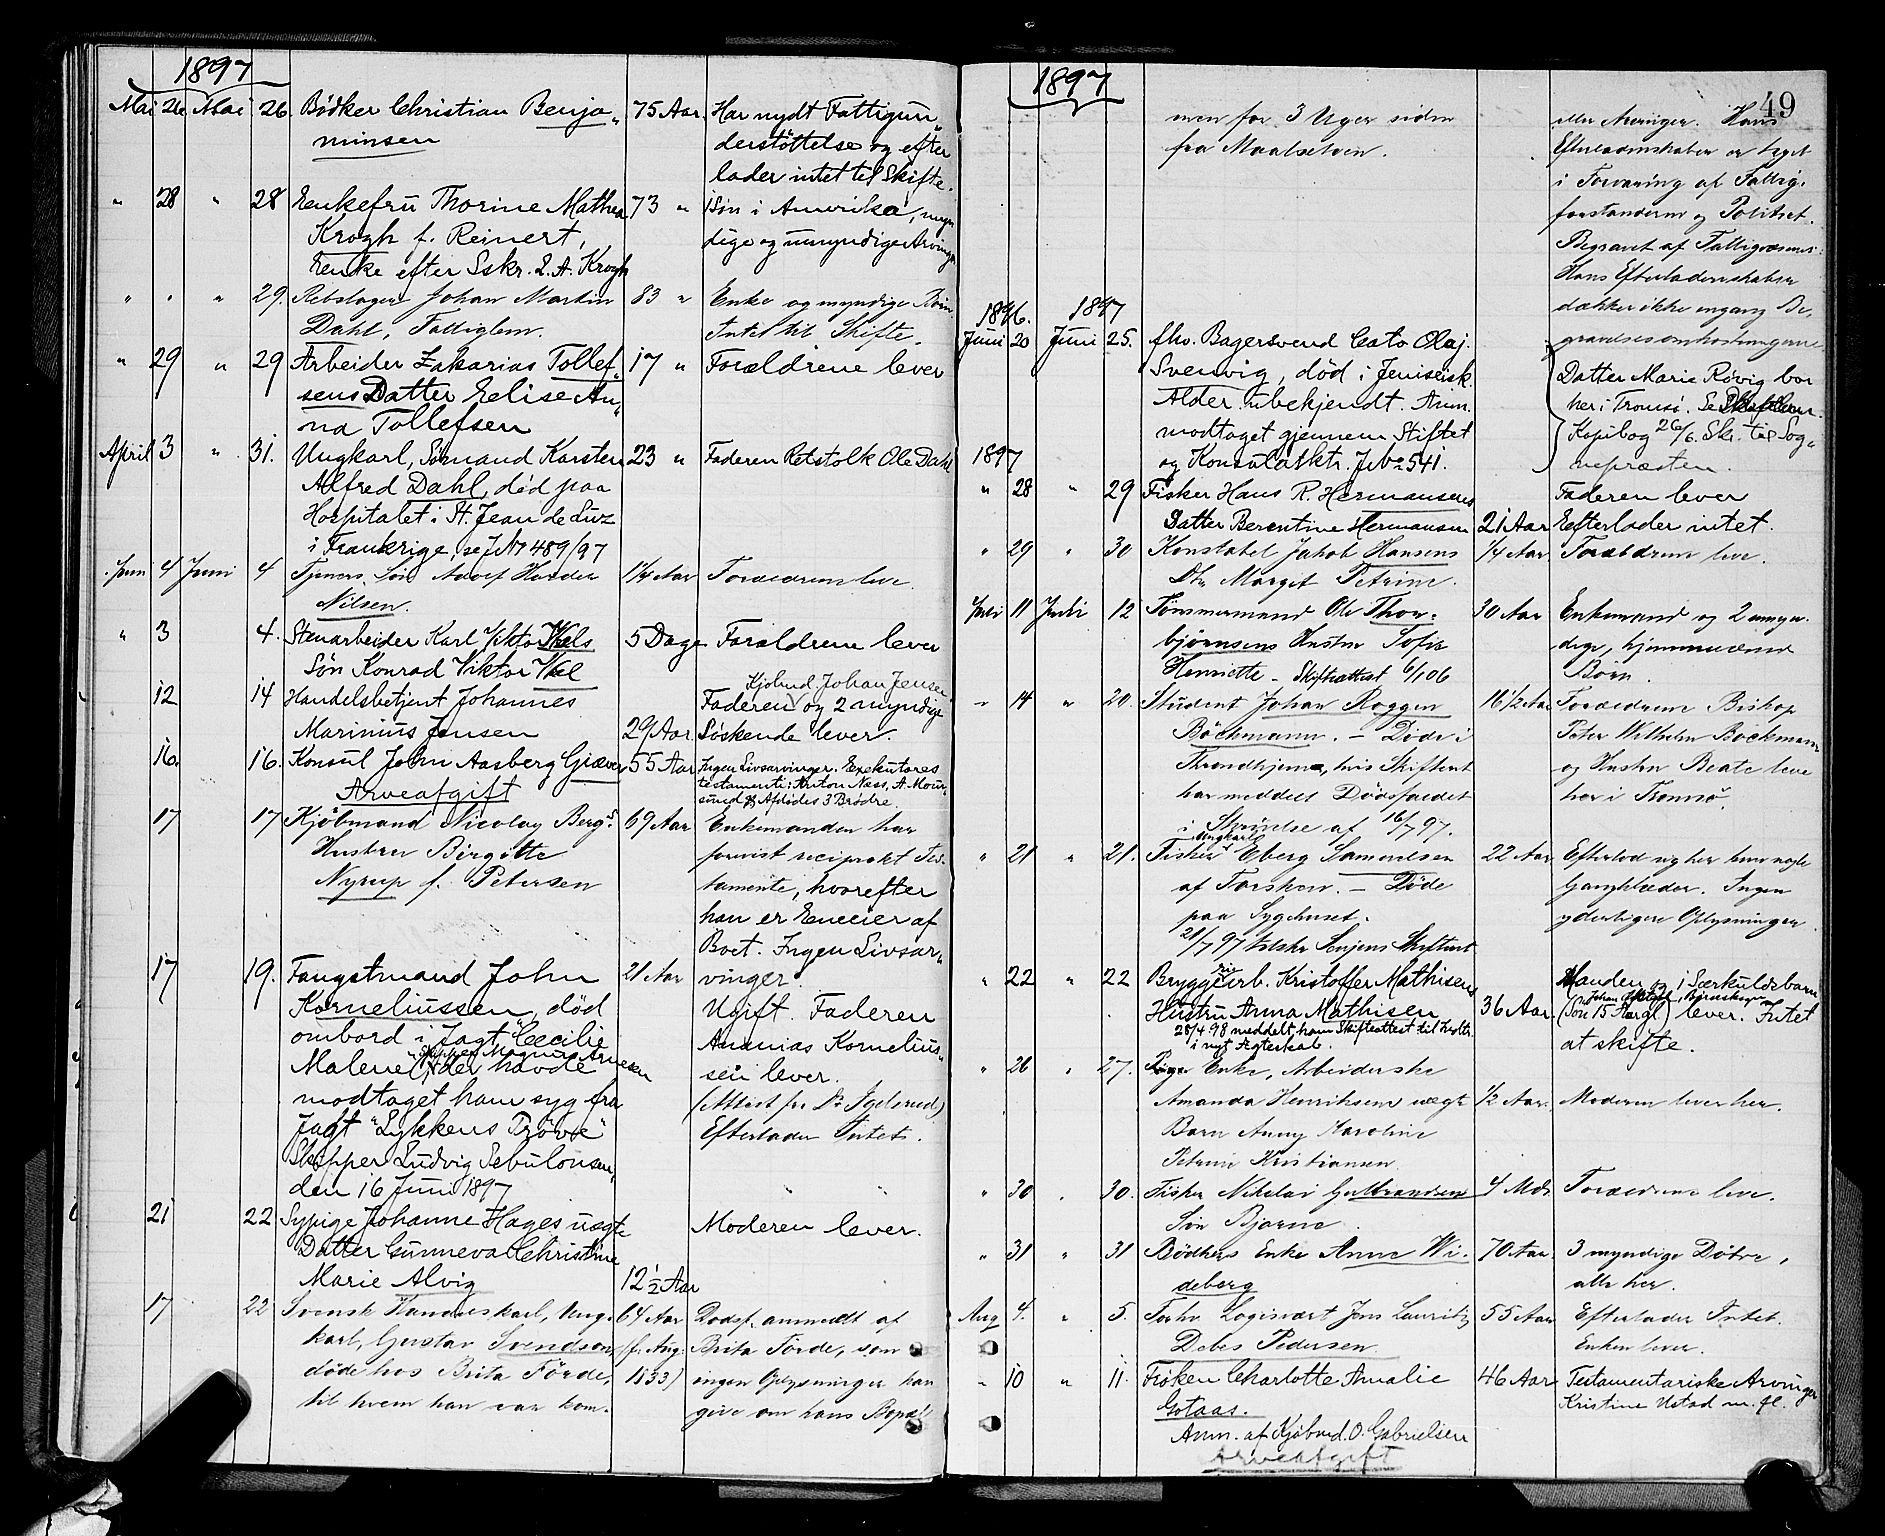 1897
Mai 26 Mai 26. Bödker Christian Benja„ 75 Aar. Har nydt Fattigun„
minsen derstöttelse og efter
lader intet til Skifte.
" 28 " 28 Enkefru Thorine Mathea 73 " 1 Søn i Amerika, myn
Krogh f. Reinert, dige og umyndige Arvinger
Enke efter Sskr. L. A. Krogh
" " " 29. Rebslager Johan Martin 83 " Enke og myndige Börn.
Dahl, Fattiglem. Intet til Skifte.
" 29 " 29 Arbeider Zakarias Tollef„ 17 " Forældrene lever
sens Datter Elise An„
na Tollefsen
April 3 " 31. Ungkarl, Sömand Karsten 23 " Faderen Retstolk Ole Dahl
Alfred Dahl, död paa
Hospitalet i St. Jean de Luz
i Frankrige, se JNr 489/97
Juni 4 Juni 4 Tjener Søn Adolf Harder 1/4 Aar Forældrene leve.
Nilsen.
" 3 4. Stenarbeider Karl Viktor Wæls 5 Dage Forældrene lever
Søn Konrad Viktor Wæl
Kjöbmd. Johan Jensen
12 14 Handelsbetjent Johannes Faderen og 2 myndige
Marinius Jensen 29 Aar. Söskende lever.
16 16. Konsul John Aasberg Giæver 55 Aar Ingen Livsarvinger. Exekutores
Arveafgift testamenti: Anton Næss, A. Mour„
sund. Afdödes 3 Brödre.
17 17 Kjöbmand Nicolay Bergs 69 Aar Enkemanden har
Hustru Birgitte forevist reciprokt Tes-
Nyrup f. Petersen tamente, hvorefter
han er Eneeier af
Boet. Ingen Livsar„
17 19. Fangstmand John 21 Aar vinger.
Korneliussen, död Ugift. Faderen
ombord i Jagt „Cecilie Ananias Kornelius„
Skipper Magnus Arnesen
Malene", der havde sen lever.
modtaget ham syg fra (Attest fra Dr Igelsrud)
Jagt "Lykkens Pröve" Efterlader Intet.
Skipper Ludvig Sebulonsen,
den 16 Juni 1897
21 22 Sypige Johanne Hages uægte Moderen lever.
Datter Gunneva Christine
Marie Alvig 12 1/2 Aar
17 22 Svensk Handelskarl, Ung- 64 Aar Dødsf. anmeldt af
karl, Gustav Svendsen, (f. Aug. Brita Förde, som
döde hos Brita Förde, 1833) ingen Oplysninger kan
til hvem han var kom- give om hans Bopæl
49
1897
men for 3 Uger siden eller Arvinger. Hans
fra Maalselven. Efterladenskaber er taget
i Forvaring af Fattig-
forstanderen og Politiet.
Begravet af Fattigvæsenet.
Hans Efterladenskaber
dækker ikke engang Be-
gravelsesomkostningerne
1896. 1897
Juni 20 Juni 25. fhv. Bagersvend Cato Olaj.
Svenvig, död i Jeniseisk. Datter Marie Rövig bor
Alder ubekjendt. Anm. her i Tromsö. Se
modtaget gjennem Stiftet Kopibog 26/6. Skr. til Sog„
1897 og Konsulatktr. JNo 541. nepræsten.
" 28 " 29 Fisker Hans R. Hermansens Faderen lever
Datter Berentine Hermansen 21 Aar Efterlader intet.
" 29 " 30 Konstabel Jakob Hansens 1/4 Aar Forældrene leve.
Dtr Margit Petrine.
Juli 11 Juli 12 Tömmermand Ole Thor- 30 Aar Enkemand og 2 umyn-
bjørnsens Hustru Sofie dige, hjemmeværende
Henriette - Skifteattest 6/1 06 Börn.
" 14 " 20. Student Johan Roggen 16 1/2 Aar Forældrene Biskop
Böckmann. – Döde i Peter Wilhelm Böckmann
Throndhjem, hvis Skifteret og Hustru Beate leve
har meddelt Dödsfaldet her i Tromsö.
i Skrivelse af 16/7 97.
Ungkarl
" 21 " 21. Fisker Eberg Samuelsen 22 Aar Efterlod sig her kun nogle
af Torsken. – Döde Gangklæder. Ingen
paa Sygehuset. yderligere Oplysninger.
21/7 97 tilskr. Senjens Skifteret
" 22 " 22 Bryggeriarb. Kristoffer Mathisens Manden og 1 Særkuldsbarn
Hustru Anna Mathisen 36 Aar (Sön 15 Aar gl.) lever. Intet
28/4 98 meddelt ham Skifteattest til Indtr. at skifte.
i nyt Ægteskab.
" 26 " 27. Enke, Arbeiderske
Amanda Henriksens uægte 1/2 Aar. Moderen lever her.
Barn Anny Karoline
Petrine Kristiansen
" 30 " 30. Fisker Nikolai Gulbrandsens 4 Mdr Forældrene leve.
Sön Bjarne.
" 31 " 31 Bödkers Enke Anne Wi- 70 Aar 3 myndige Dötre,
deberg alle her.
Aug 4. " 5. Forhv. Logivært Jens Lauritz 55 Aar Efterlader Intet.
Debes Pedersen. Enken lever.
" 10 " 11. Fröken Charlotte Amalie 46 Aar Testamentariske Arvinger
Gotaas. Kristine Ustad m. fl.
Anm. af Kjöbmd. O. Gabrielsen
Arveafgift